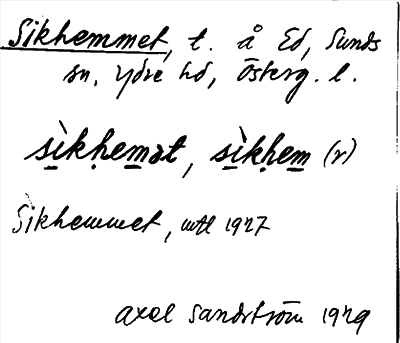 Sikhemmet, t. å Ed, Sunds
sn, Ydre hd, Österg. l.
sìkḥemət, sìkḥem (r)
Sìkhemmet, mtl 1927
Axel Sandström 1929